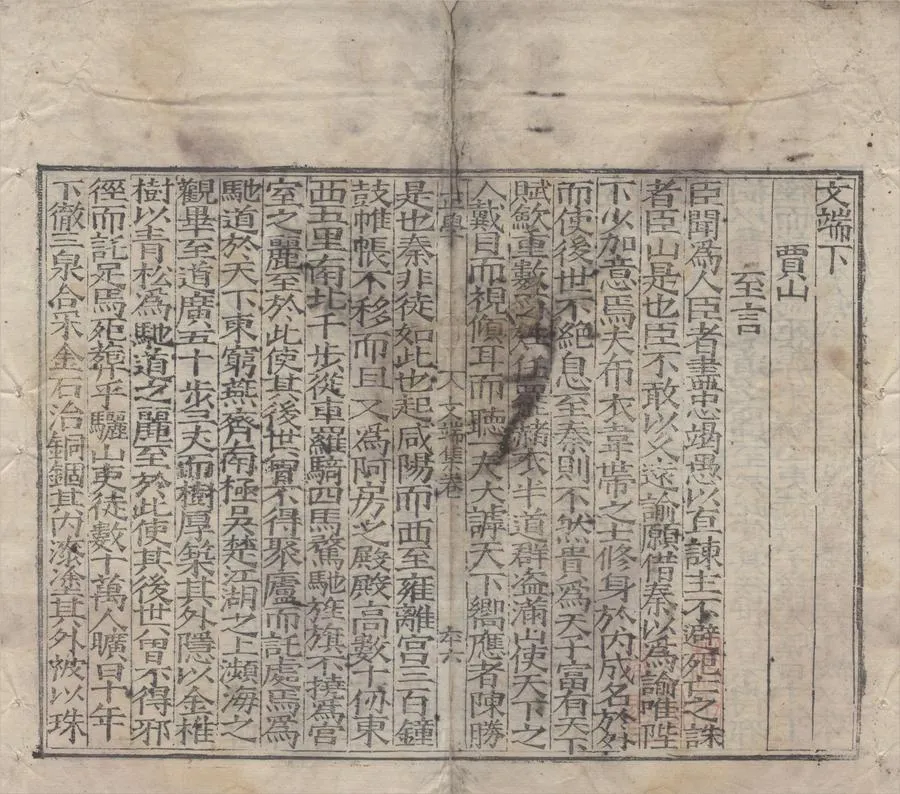 文端下
賈山
至言
臣聞爲人臣者盡忠竭愚以直諫主不避死亡之誅
者臣山是也臣不敢以久遠諭願借秦以爲諭唯陛
下少加意焉夫布衣韋帶之士修身於內成名於外
而使後世不絕息至秦則不然貴爲天子富有天下
賦斂重數 任罪赭衣半道群盜滿山使天下之
人戴目而視傾耳而聽一夫大謼天下嚮應者陳勝
文端集卷 六
是也秦非徒如此也起咸陽而西至雍離宮三百鐘
鼓帷帳不移而具又爲阿房之殿殿高數十仞東
西五里南北千步從車羅騎四馬鶩馳旌旗不撓爲宮
室之麗至於此使其後世曾不得聚廬而託處焉爲
馳道於天下東窮燕齊南極吳楚江湖之上瀕海之
觀畢至道廣五十步三丈而樹厚築其外隱以金椎
樹以青松爲馳道之麗至於此使其後世曾不得邪
徑而託足焉死葬乎驪山吏徒數十萬人曠日十年
下徹三泉合采金石冶銅錮其內漆塗其外被以珠